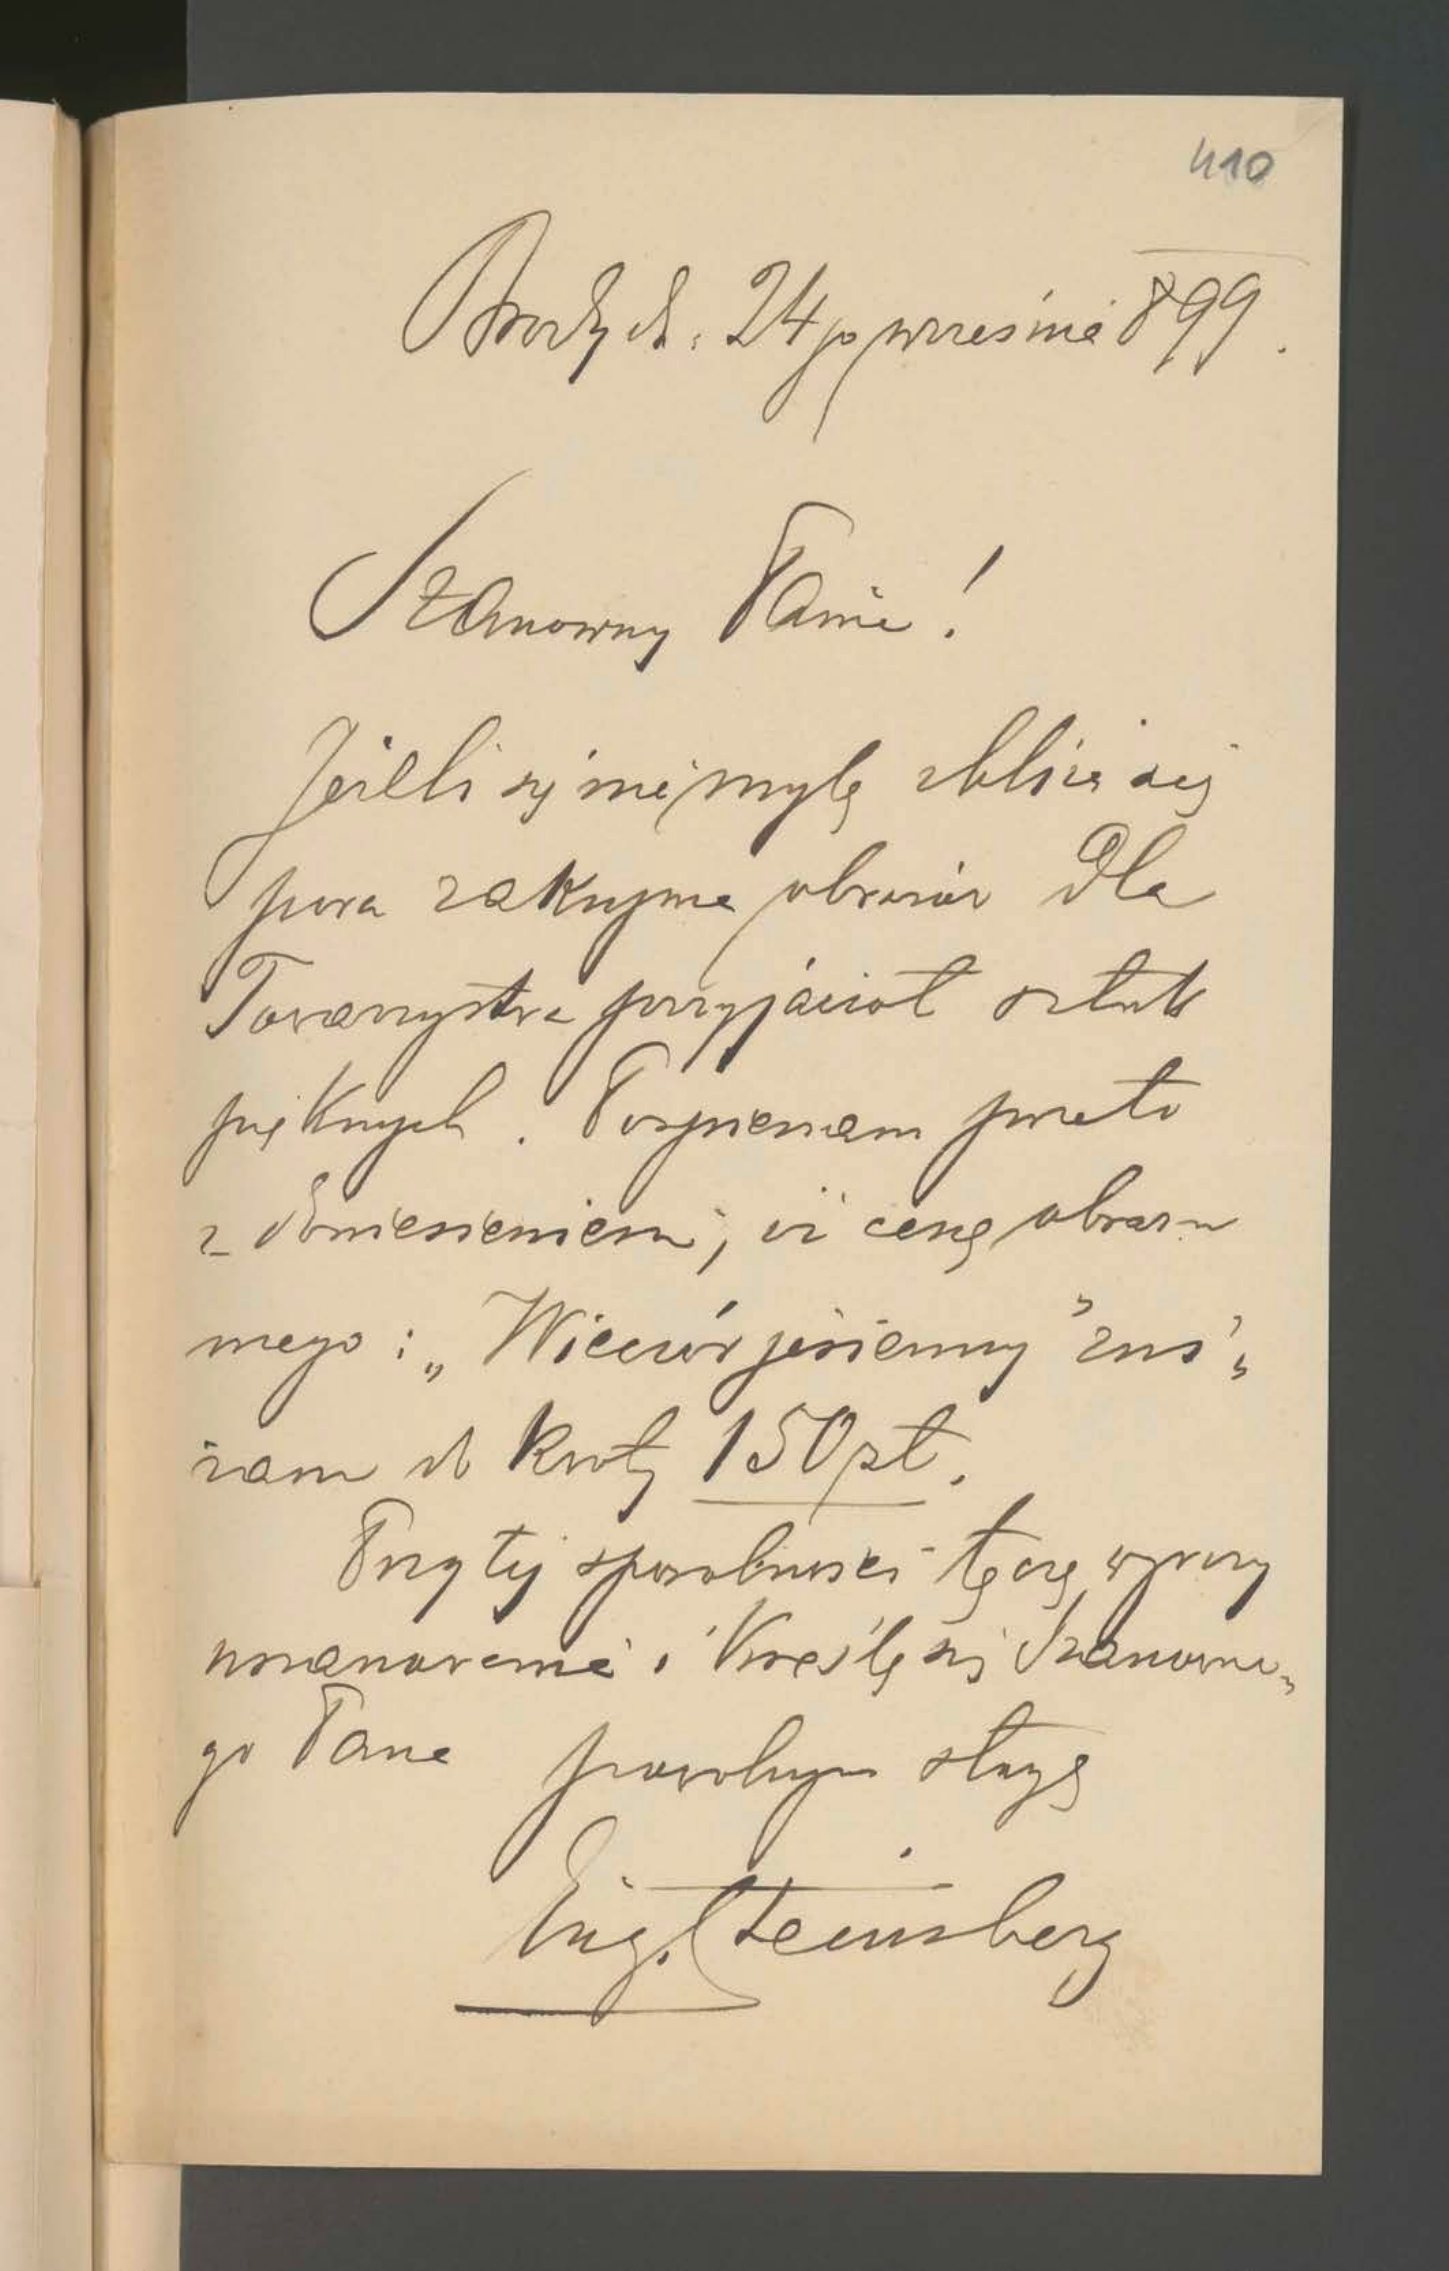 410
Brody d. 24go września 899.
Szanowny Panie!
Jeżeli się nie mylę zbliża się
pora zakupna obrazów dla
Towarzystwa przyjaciół sztuk
pięknych. Pospieszam przeto
z doniesieniem, iż cenę obrazu
mego: „Wieczór jesienny" zni„
żam do kwoty 150 zł.
Przy tej sposobności łączę wyrazy
uszanowania i kreślę się Szanowne„
go Pana powolnym sługą
Eug. Steinsberg